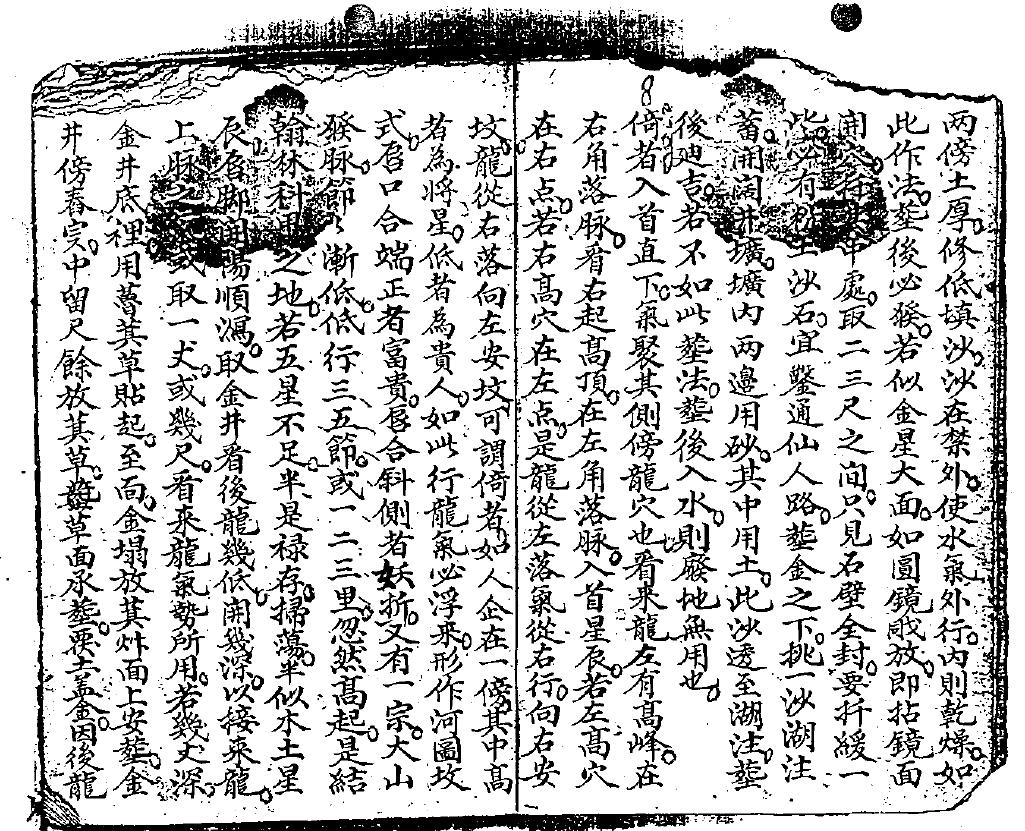 两傍土厚。修低填沙。沙在禁外。使水氣外行。内則乾燥。如
此作法。塟後必發。若似金星大面。如圓鏡戝放。即拈鏡面
開中處。取二三尺之间。只見石壁全封。要扦緩一
此必有土沙石。宜鑿通仙人路。塟金之下。挑一沙湖注
蓄。開阔井壙。壙内两邊用砂。其中用土。此沙透至湖注。塟
後廸吉。若不如此塟法。塟後入水。則廢地無用也。
8
倚者入首直下。氣聚其側傍龍穴也。看來龍左有高峰。在
右角落脉。看右起高頂。在左角落脉。入首星辰。若左高穴
在右点。若右高穴在左点。是龍從左落氣從右行。向右安
坟。龍從右落向左安坟。可謂倚者。如人企在一傍。其中高
者為將星。低者為貴人。如此行龍氣必浮來。形作河圖坟
式。唇口合端正者富貴。唇合斜側者妖折。又有一宗。大山
發脉。節々漸低。低行三五節。或一二三里。忽然高起。是結
翰林科甲之地。若五星不足。半是禄存。掃蕩。半似木土星
辰。唇脚開陽順瀉。取金井看後龍幾低。開幾深。以接來龍
上脉之氣。或取一丈。或幾尺。看來龍氣勢所用。若幾丈深。
金井底裡用蓍萁草貼起。至面。金塌放萁炸面上安塟。金
井傍舂実。中留尺餘放萁草。草面承塟。要土盖金。因後龍